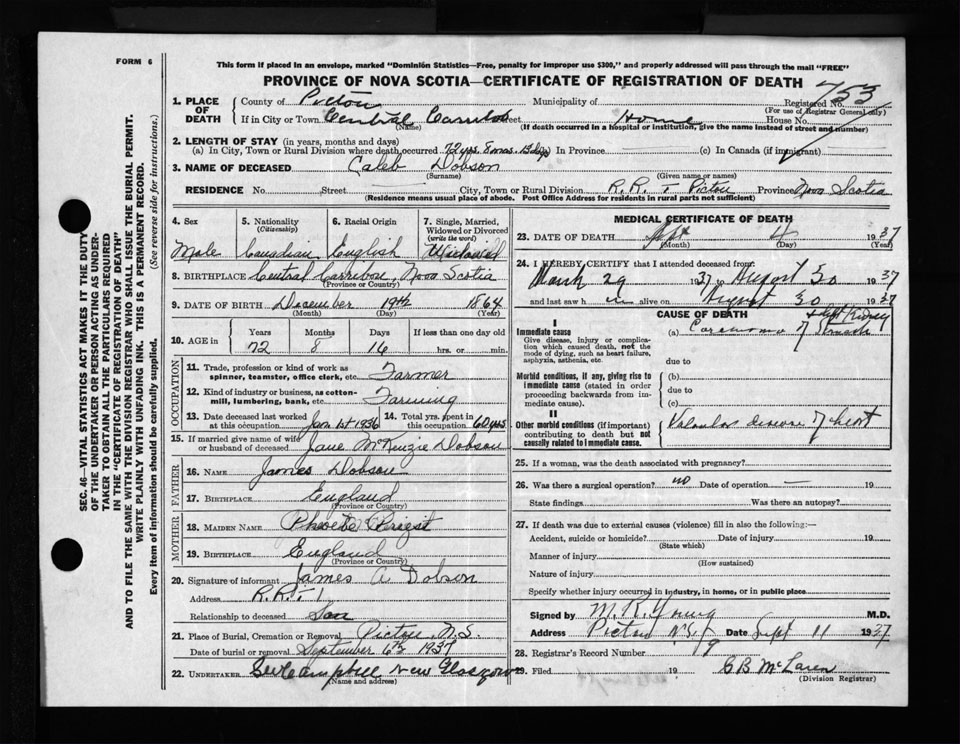 FORM 6
This form if placed in an envelope, marked "Dominion Statistics—Free, penalty for improper use $300," and properly addressed will pass through the mail "FREE"
PROVINCE OF NOVA SCOTIA—CERTIFICATE OF REGISTRATION OF DEATH
753
1. PLACE OF DEATH
County of Pictou Municipality of Registered No.
(For use of Registrar General only)
If in City or Town Central Carribou Street Home House No.
(Name) (If death occurred in a hospital or institution, give the name instead of street and number)
2. LENGTH OF STAY (in years, months and days)
(a) In City, Town or Rural Division where death occurred 72 yrs. 8 mos. (b) In Province (c) In Canada (if immigrant)
3. NAME OF DECEASED Caleb Dobson
(Surname) (Given name or names)
RESIDENCE No. Street City, Town or Rural Division R.R. 1 Pictou Province Nova Scotia
(Residence means usual place of abode. Post Office Address for residents in rural parts not sufficient)
SEC. 46—VITAL STATISTICS ACT MAKES IT THE DUTY
OF THE UNDERTAKER OR PERSON ACTING AS UNDER-
TAKER TO OBTAIN ALL THE PARTICULARS REQUIRED
IN THE "CERTIFICATE OF REGISTRATION OF DEATH"
AND TO FILE THE SAME WITH THE DIVISION REGISTRAR WHO SHALL ISSUE THE BURIAL PERMIT.
WRITE PLAINLY WITH UNFADING INK. THIS IS A PERMANENT RECORD.
Every item of information should be carefully supplied. (See reverse side for instructions.)
4. Sex 5. Nationality 6. Racial Origin 7. Single, Married,
(Citizenship) Widowed or Divorced
(write the word)
Male Canadian English Widowed
8. BIRTHPLACE Central Carribou, Nova Scotia
(Province or Country)
9. DATE OF BIRTH December 19th 1864
(Month) (Day) (Year)
10. AGE in
Years Months Days If less than one day old
72 8 16 hrs. or min.
OCCUPATION
11. Trade, profession or kind of work as
spinner, teamster, office clerk, etc. Farmer
12. Kind of industry or business, as cotton-
mill, lumbering, bank, etc. Farming
13. Date deceased last worked 14. Total yrs. spent in
at this occupation Jan 1st 1936 this occupation 60 yrs.
15. If married give name of wife
or husband of deceased Jane McKenzie Dobson
FATHER
16. NAME James Dobson
17. BIRTHPLACE England
(Province or Country)
MOTHER
18. MAIDEN NAME Phoebe
19. BIRTHPLACE England
(Province or Country)
20. Signature of informant James A Dobson
Address R.R. 1
Relationship to deceased Son
21. Place of Burial, Cremation or Removal Pictou N.S.
Date of burial or removal September 6th 1937
22. UNDERTAKER Campbell New Glasgow
(Name and address)
MEDICAL CERTIFICATE OF DEATH
23. DATE OF DEATH Sept 4 1937
(Month) (Day) (Year)
24. I HEREBY CERTIFY that I attended deceased from:
March 29 1937 to August 30 1937
and last saw h alive on August 30 1937
CAUSE OF DEATH
I
Immediate cause
Give disease, injury or complica-
tion which caused death, not the
mode of dying, such as heart failure,
asphyxia, asthenia, etc.
(a) Carcinoma of Stomach & left Kidney
due to
Morbid conditions, if any, giving rise to
immediate cause (stated in order
proceeding backwards from im-
mediate cause).
(b)
due to
(c)
II
Other morbid conditions (if important)
contributing to death but not
causally related to immediate cause.
Valvular disease of heart
25. If a woman, was the death associated with pregnancy?
26. Was there a surgical operation? no Date of operation — 19
State findings Was there an autopsy?
27. If death was due to external causes (violence) fill in also the following:—
Accident, suicide or homicide? Date of injury 19
(State which)
Manner of injury
(How sustained)
Nature of injury
Specify whether injury occurred in industry, in home, or in public place
Signed by M. R. Young M.D.
Address Pictou N.S. Date Sept 11 1937
28. Registrar's Record Number 9
29. Filed 19 C B McLaren
(Division Registrar)